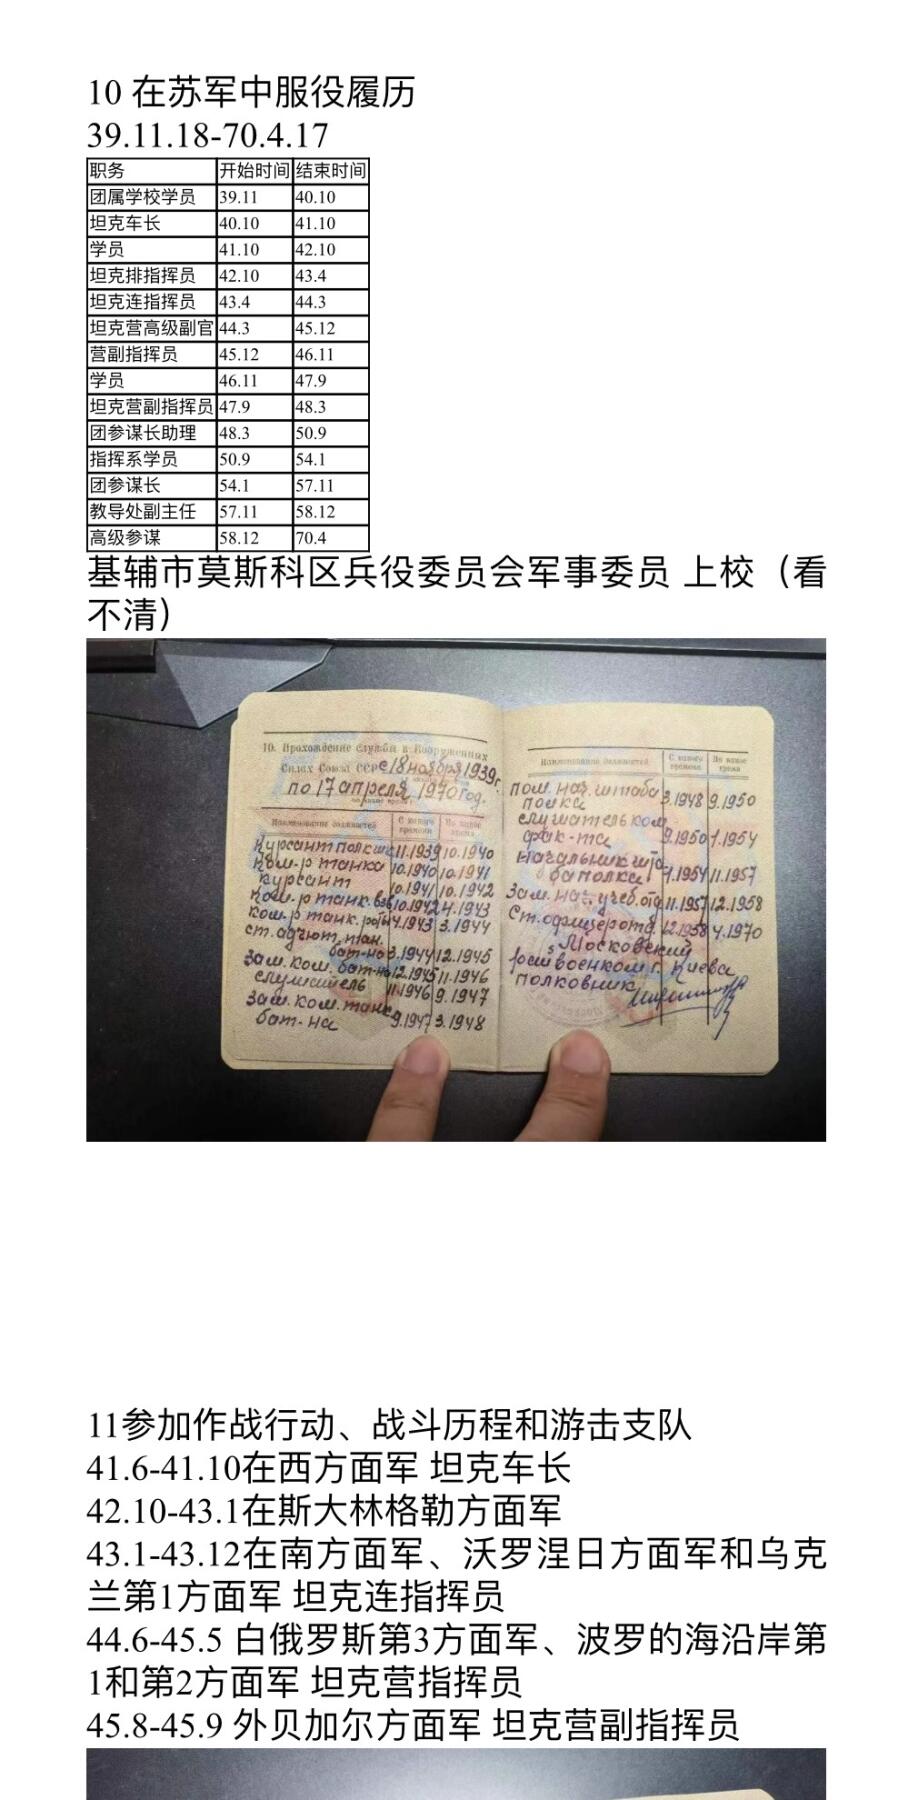 10 在苏军中服役履历
39.11.18-70.4.17
职务 开始时间 结束时间
团属学校学员 39.11 40.10
坦克车长 40.10 41.10
学员 41.10 42.10
坦克排指挥员 42.10 43.4
坦克连指挥员 43.4 44.3
坦克营高级副官 44.3 45.12
营副指挥员 45.12 46.11
学员 46.11 47.9
坦克营副指挥员 47.9 48.3
团参谋长助理 48.3 50.9
指挥系学员 50.9 54.1
团参谋长 54.1 57.11
教导处副主任 57.11 58.12
高级参谋 58.12 70.4
基辅市莫斯科区兵役委员会军事委员 上校（看
不清）
10. Прохождение службы в Вооруженных
Силах Союза ССР с 18 ноября 1939г.
по 17 апреля 1970 год.
Наименование должностей С какого времени По какое время
Курсант полк шк 11.1939 10.1940
Ком-р танка 10.1940 10.1941
Курсант 10.1941 10.1942
Ком-р танк. взв 10.1942 4.1943
Ком-р танк. роты 4.1943 3.1944
ст. адъют. тан.
бат-на 3.1944 12.1945
Зам. ком. бат-на 12.1945 11.1946
слушатель 11.1946 9.1947
Зам. ком. танк
бат-на 9.1947 3.1948
Наименование должностей С какого времени По какое время
Пом. нач. штаба
полка 3.1948 9.1950
слушатель ком.
фак-та 9.1950 1.1954
Начальник шта
ба полка 1.1954 11.1957
Зам. нач. учеб. отд 11.1957 12.1958
Ст. офицер отд. 12.1958 4.1970
Московский
райвоенком г. Киева
полковник
11参加作战行动、战斗历程和游击支队
41.6-41.10在西方面军 坦克车长
42.10-43.1在斯大林格勒方面军
43.1-43.12在南方面军、沃罗涅日方面军和乌克
兰第1方面军 坦克连指挥员
44.6-45.5 白俄罗斯第3方面军、波罗的海沿岸第
1和第2方面军 坦克营指挥员
45.8-45.9 外贝加尔方面军 坦克营副指挥员